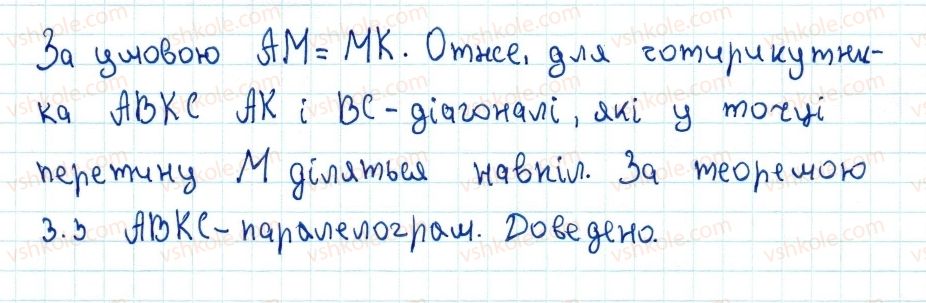 За умовою AM = MK. Отже, для чотирикутни-
ка ABKC AK і BC - діагоналі, які у точці
перетину M діляться навпіл. За теоремою
3.3 ABKC - паралелограм. Доведено.